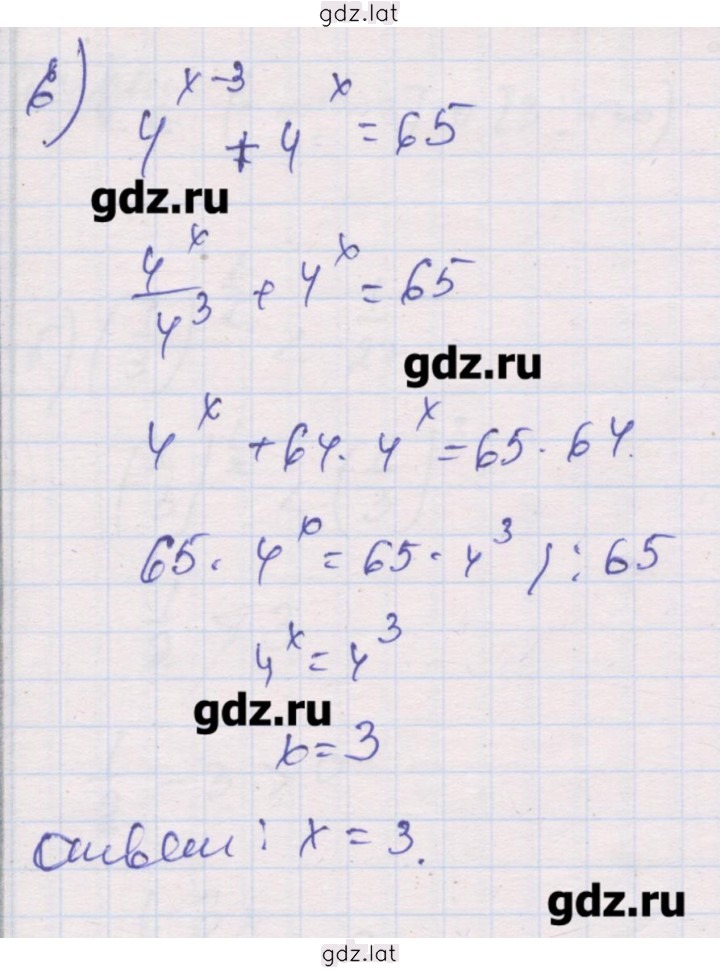 gdz.lat
б) 4^(x-3) + 4^x = 65
gdz.ru
4^x/4^3 + 4^x = 65
gdz.ru
4^x + 64 · 4^x = 65 · 64.
65 · 4^x = 65 · 4^3 / : 65
4^x = 4^3
gdz.ru
x = 3
Ответ: x = 3.
gdz.ru
gdz.lat